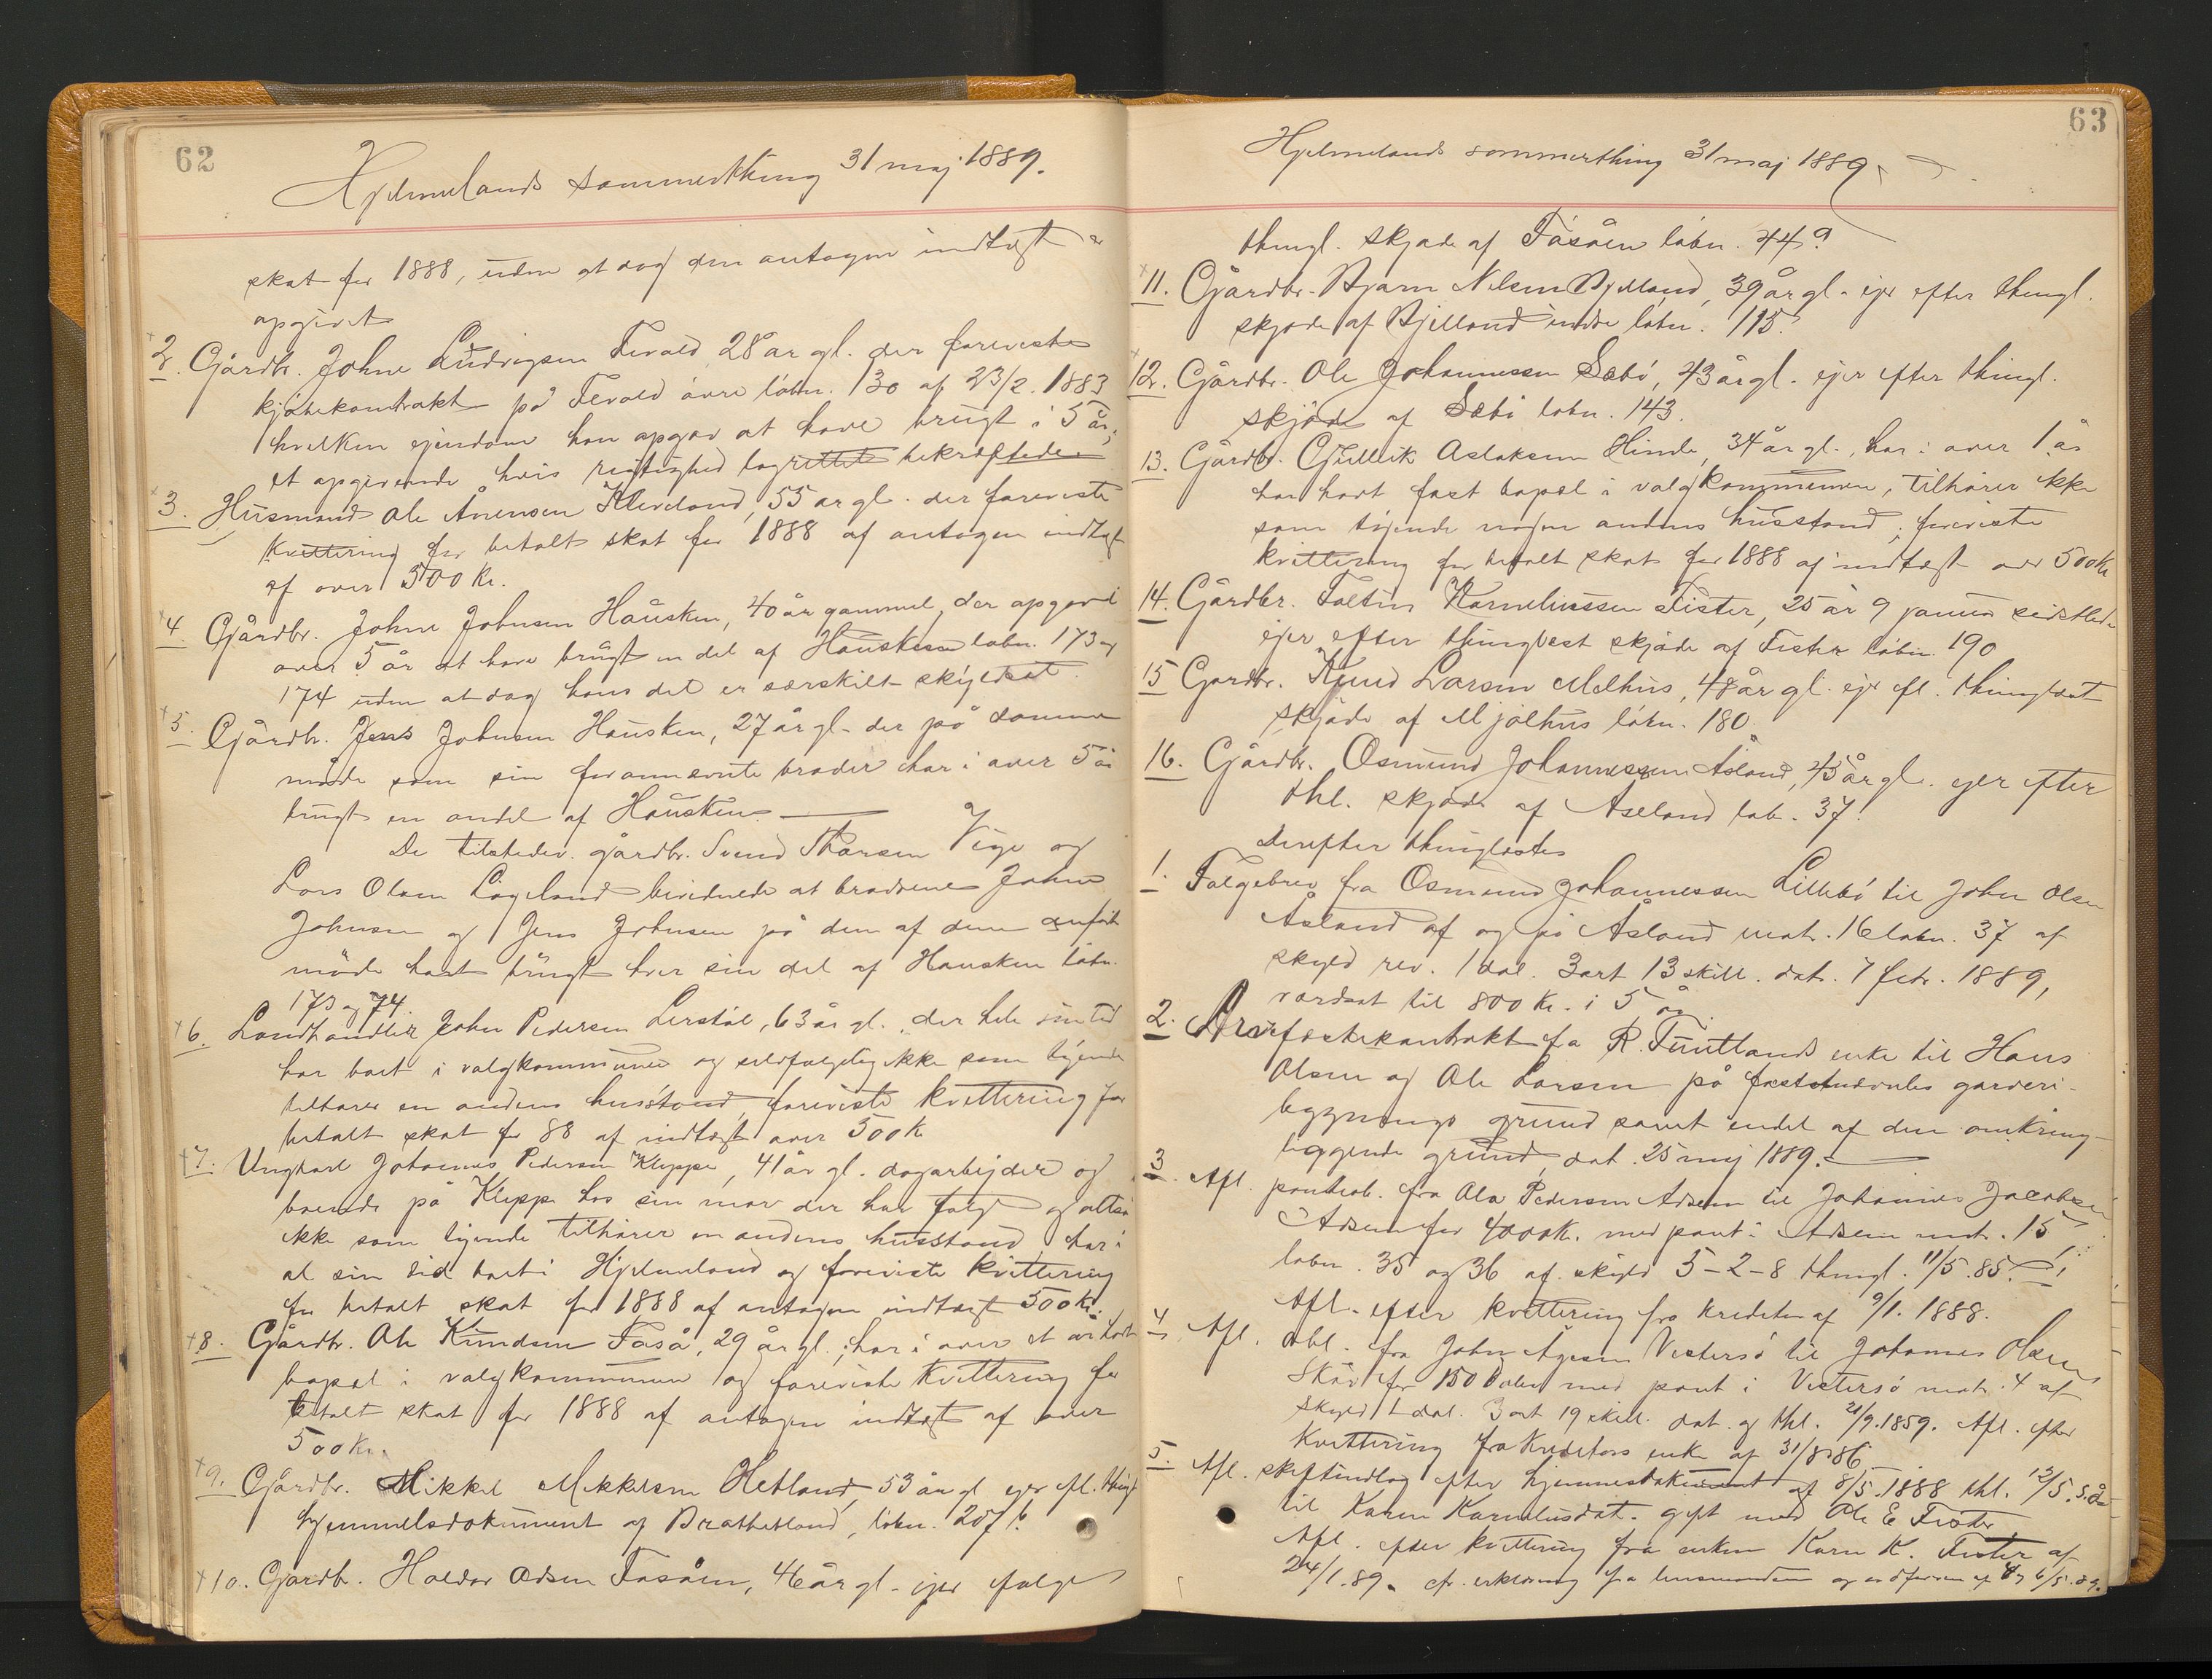 62
Hjelmelands sommerthing 31 maj 1889.
skat for 1888, uden at dog den antagen indtægt er
opgivet
2. Gårdbr. Johne Ludvigsen Tevold 28 år gl. der foreviste
kjøbekontrakt på Tevold øvre løbn. 130 af 23/2. 1883
hvilken ejendom han opgav at have brugt i 5 år,
et opgivende hvis rigtighed lagrettet bekræftede
3. Husmand Ole Ånensen Kleveland, 55 år gl. der foreviste
kvittering for betalt skat for 1888 af antagen indtægt
af over 500 Kr.
4. Gårdbr. Johne Johnsen Hausken, 40 år gammel, der opgav i
over 5 år at have brugt en del af Hausken løbn. 173 og
174 uden at dog hans del er særskilt skyldsat.
5. Gårdbr. Jens Johnsen Hausken, 27 år gl. der på samme
måde som sin forannævnte broder har i over 5 år
brugt en andel af Hausken.
De tilstedev. gårdbr. Svend Thorsen Vige og
Lars Olsen Ligeland bevidnede at brødrene Johne
Johnsen og Jens Johnsen på den af dem anførte
måde havt brugt hver sin del af Hausken løbn.
173 og 74.
6. Landhandler John Pedersen Lerstøl, 63 år gl. der hele sin tid
har boet i valgkommunen og selvfølgelig ikke som tyende
tilhører en andens husstand, foreviste kvittering for
betalt skat for 88 af indtægt over 500 K
7. Ungkarl Johannes Pedersen Kleppe, 41 år gl. dagarbejder og
boende på Klepp hos sin mor der har folge og altså
ikke som tyende tilhører en andens husstand, har i
al sin tid boet i Hjelmeland og foreviste kvittering
for betalt skat for 1888 af antagen indtægt 500 Kr.
8. Gårdbr. Ole Knudsen Faså, 29 år gl. har i over et år havt
bopæl i valgkommunen og foreviste kvittering for
betalt skat for 1888 af antagen indtægt af over
500 Kr.
9. Gårdbr. Mikkel Mikkelsen Hetland, 53 år gl ejer efl. thingl
hjemmelsdokument af Bratthetland, løbn. 207 b.
10. Gårdbr. Haldor Odsen Fasåen, 46 år gl. ejer ifølge
63
Hjelmelands sommerthing 31 maj 1889
thingl. skjøde af Fasåen løbn. 44 a
11. Gårdbr. Bjørn Nilsen Bjelland, 39 år gl. ejer efter thingl.
skjøde af Bjelland indre løbn. 115.
12. Gårdbr. Ole Johannessen Sæbø, 43 år gl. ejer efter thingl.
skjøde af Sæbø løbn. 143.
13. Gårdbr. Gjullik Aslaksen Hinde, 34 år gl., har i over 1 år
har havt fast bopæl i valgkommunen, tilhører ikke
som tyende nogen andens husstand, foreviste
kvittering for betalt skat for 1888 af indtægt over 500 Kr
14. Gårdbr. Toltin Kornelinssen Fister, 25 år 9 januar sidstleden
ejer efter thinglæst skjøde af Fister løbn. 190
15 Gårdbr. Knud Larsen Melhus, 48 år gl. ejer efl. thinglæst
skjøde af Mjølhus løbn. 180.
16. Gårdbr. Osmund Johannessen Åsland, 45 år gl. ejer efter
thl. skjøde af Åseland løb. 37.
Derefter thinglæstes
1. Følgebrev fra Osmund Johannessen Lillebø til John Olsen
Åsland af og på Åsland matr. 16 løbn. 37 af
skyld rev. 1 dal. 3 ort 13 skill. dat. 7 febr. 1889,
værdsat til 800 Kr. i 5 år.
2. Arvefæstekontrakt fra R. Tuntlands enke til Hans
Olsen og Ole Larsen på faststående garveri-
bygnings grund samt endel af den omkring-
liggende grund, dat. 25 maj 1889.
3. Afl. panteob. fra Ola Pedersen Adsen til Johannes Jacobsen
Adsen for 4000 K. med pant i Adsen matr. 15,
løbn. 35 og 36 af skyld 5-2-8 thingl. 11/5.85.
Afl. efter kvittering fra kreditor af 9/1. 1888.
4 Afl. obl. fra John Ågesen Vestersø til Johannes Olsen
Skår for 150 Daler med pant i Vestersø matr. 4 af
skyld 1 dal. 3 ort 19 skill. dat. og thl. 21/9.1859. Afl. efter
kvittering fra kreditors enke af 31/8 86.
5. Afl. skifteudlæg efter hjemmesdokument af 8/5.1888 thl. 12/5. s.å.
til Karen Karnelusdat. gift med Ole E Fister
Afl. efter kvittering fra enken Karen K. Fister af
24/1.89. cfr. erklæring fra lensmanden og ordføreren af 4/ og 6/5.89.